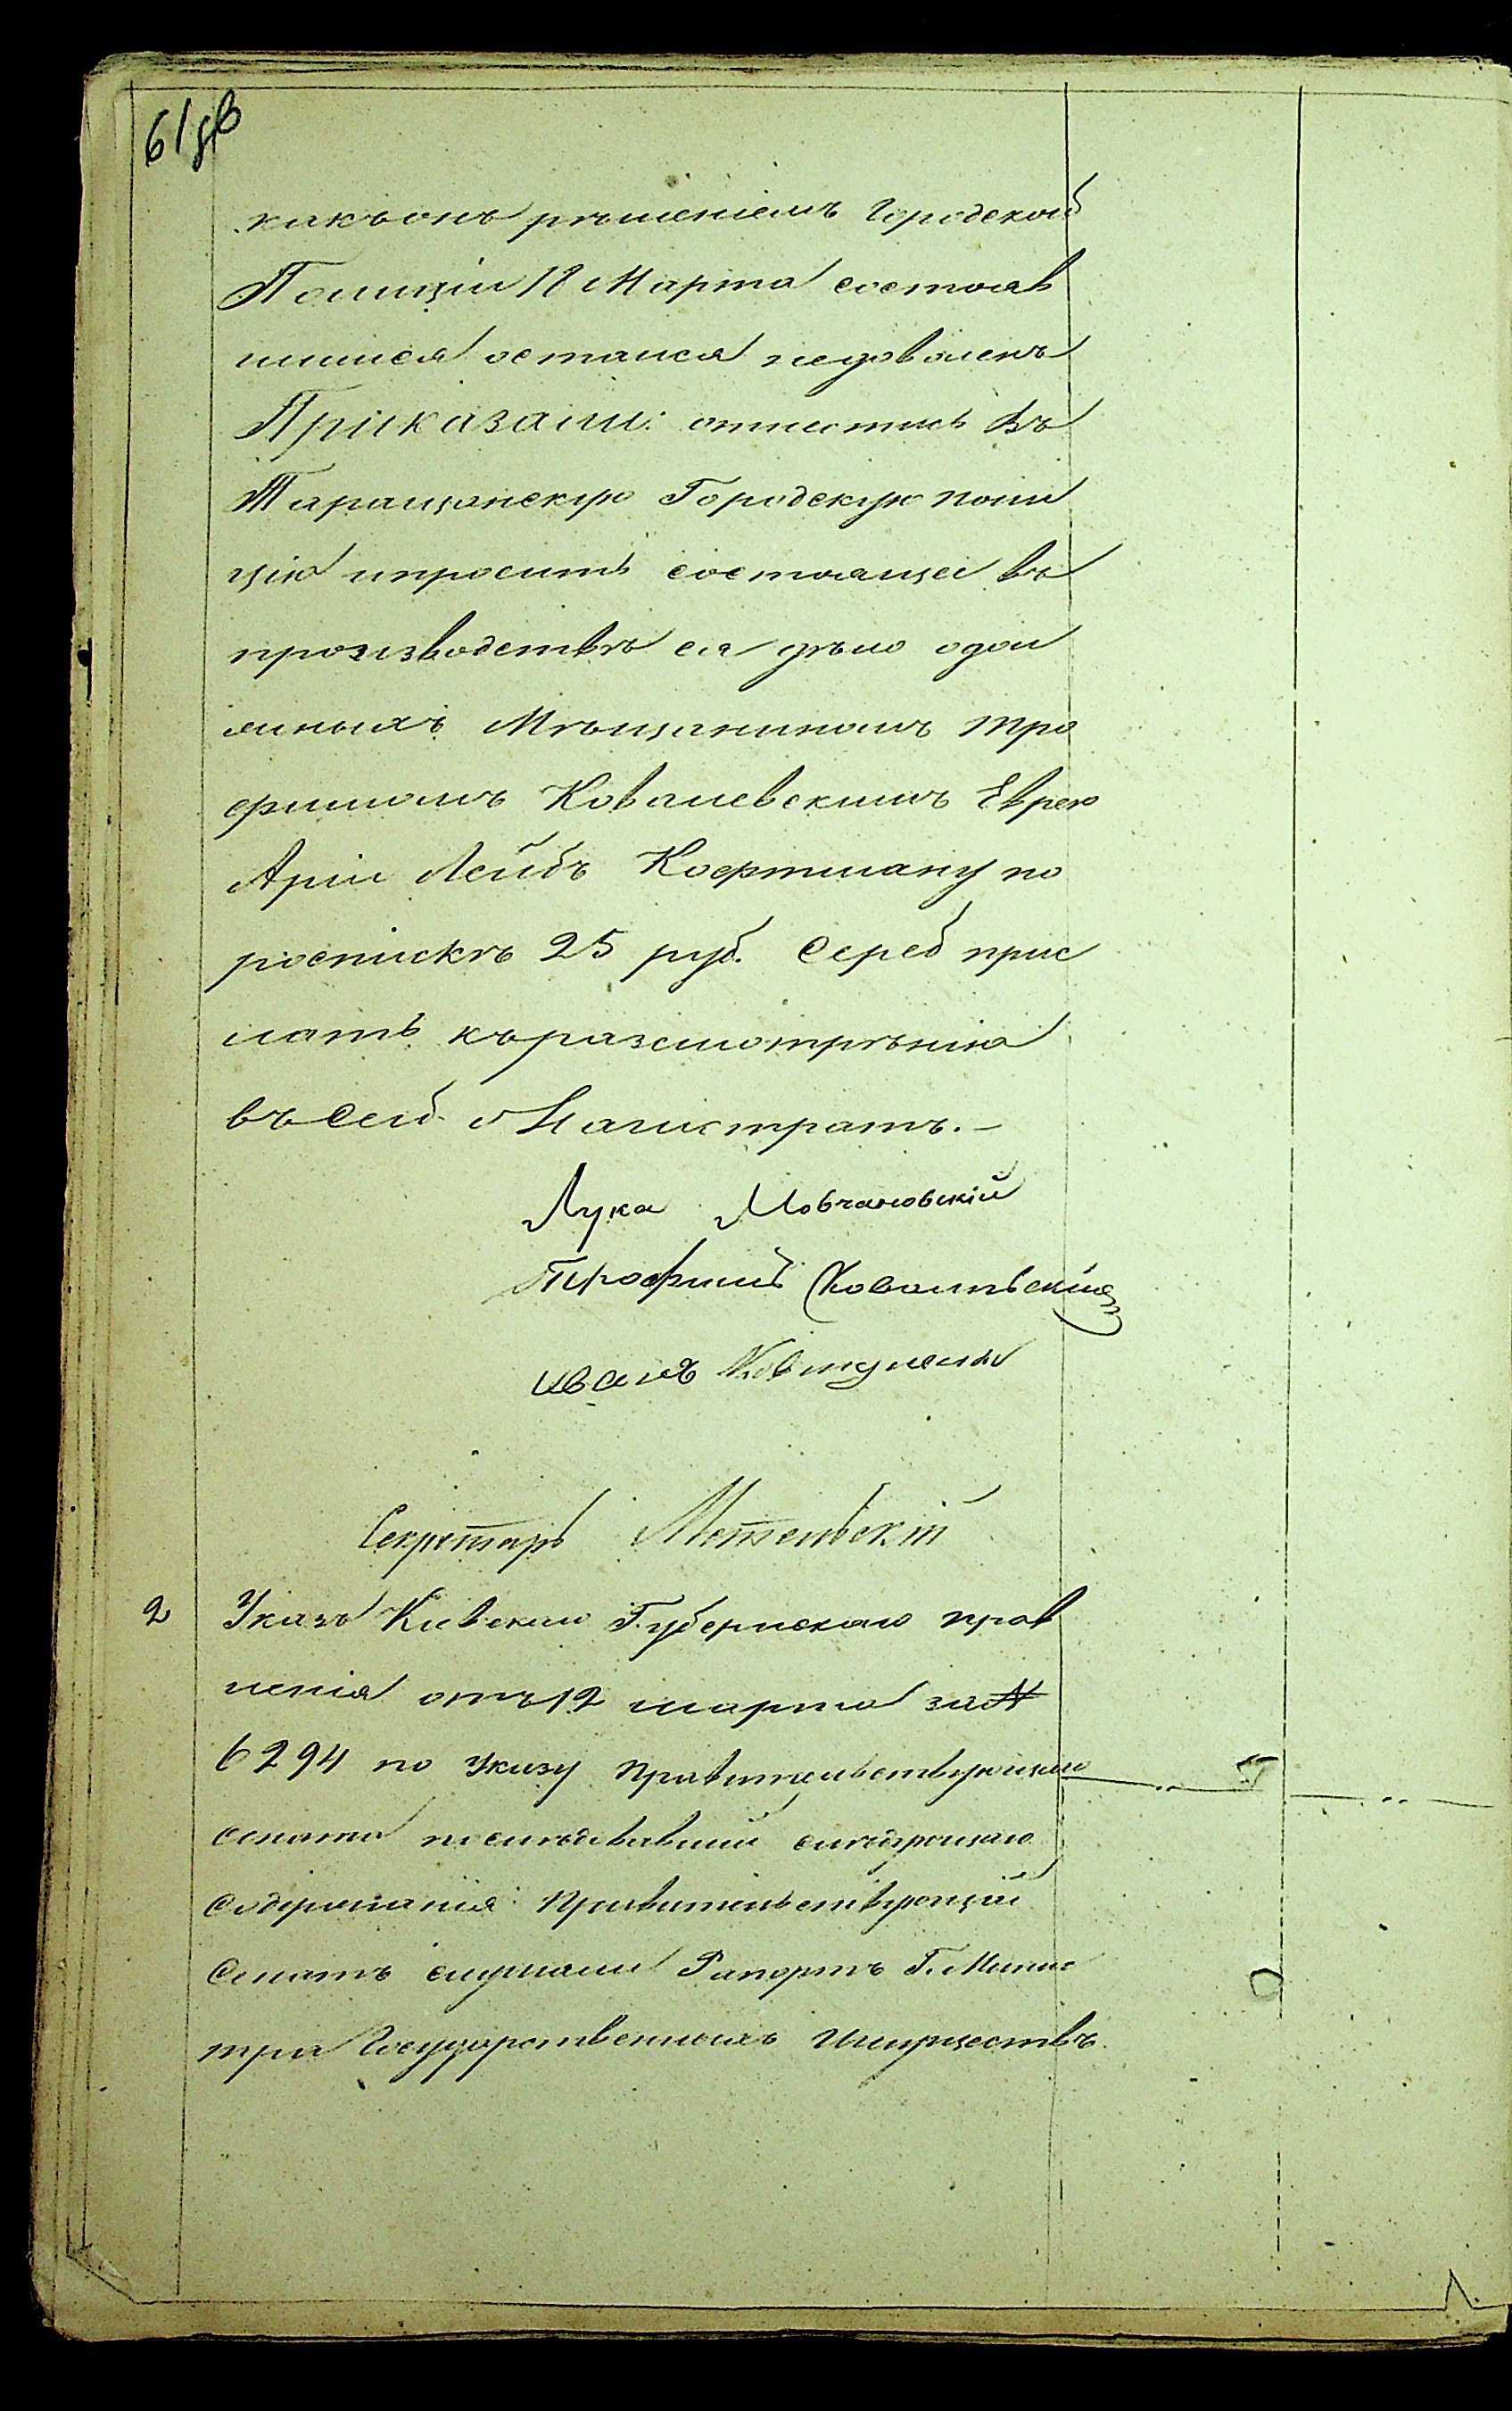 61 дв
какъ онъ рѣшеніемъ Городской
Полиціи 18 Марта состояв
шимся остался недоволенъ
Приказали: отнестись въ
Таращанскую Городскую поли
цію и просить состоящее въ
производствѣ ея дѣло о дол
жныхъ Мѣщаниномъ Тро
фимомъ Ковалевскимъ Еврею
Аріи Лейбѣ Кофтману по
роспискѣ 25 руб. Сереб прис
лать къ разсмотрѣнію
въ Сей Магистратъ.–
Лука Мовчановскій
Трофимъ Ковалевскій
иванъ Ковтуненк
Секретарь
2 Указъ Кіевскаго Губернскаго прав
ленія отъ 12 марта за №
6294 по Указу Правительствующаго
сената послѣдовавшій слѣдующаго
содержанія: Правительствующій
Сенатъ слушали Рапортъ Г. Минис
тра Государственныхъ Имуществъ